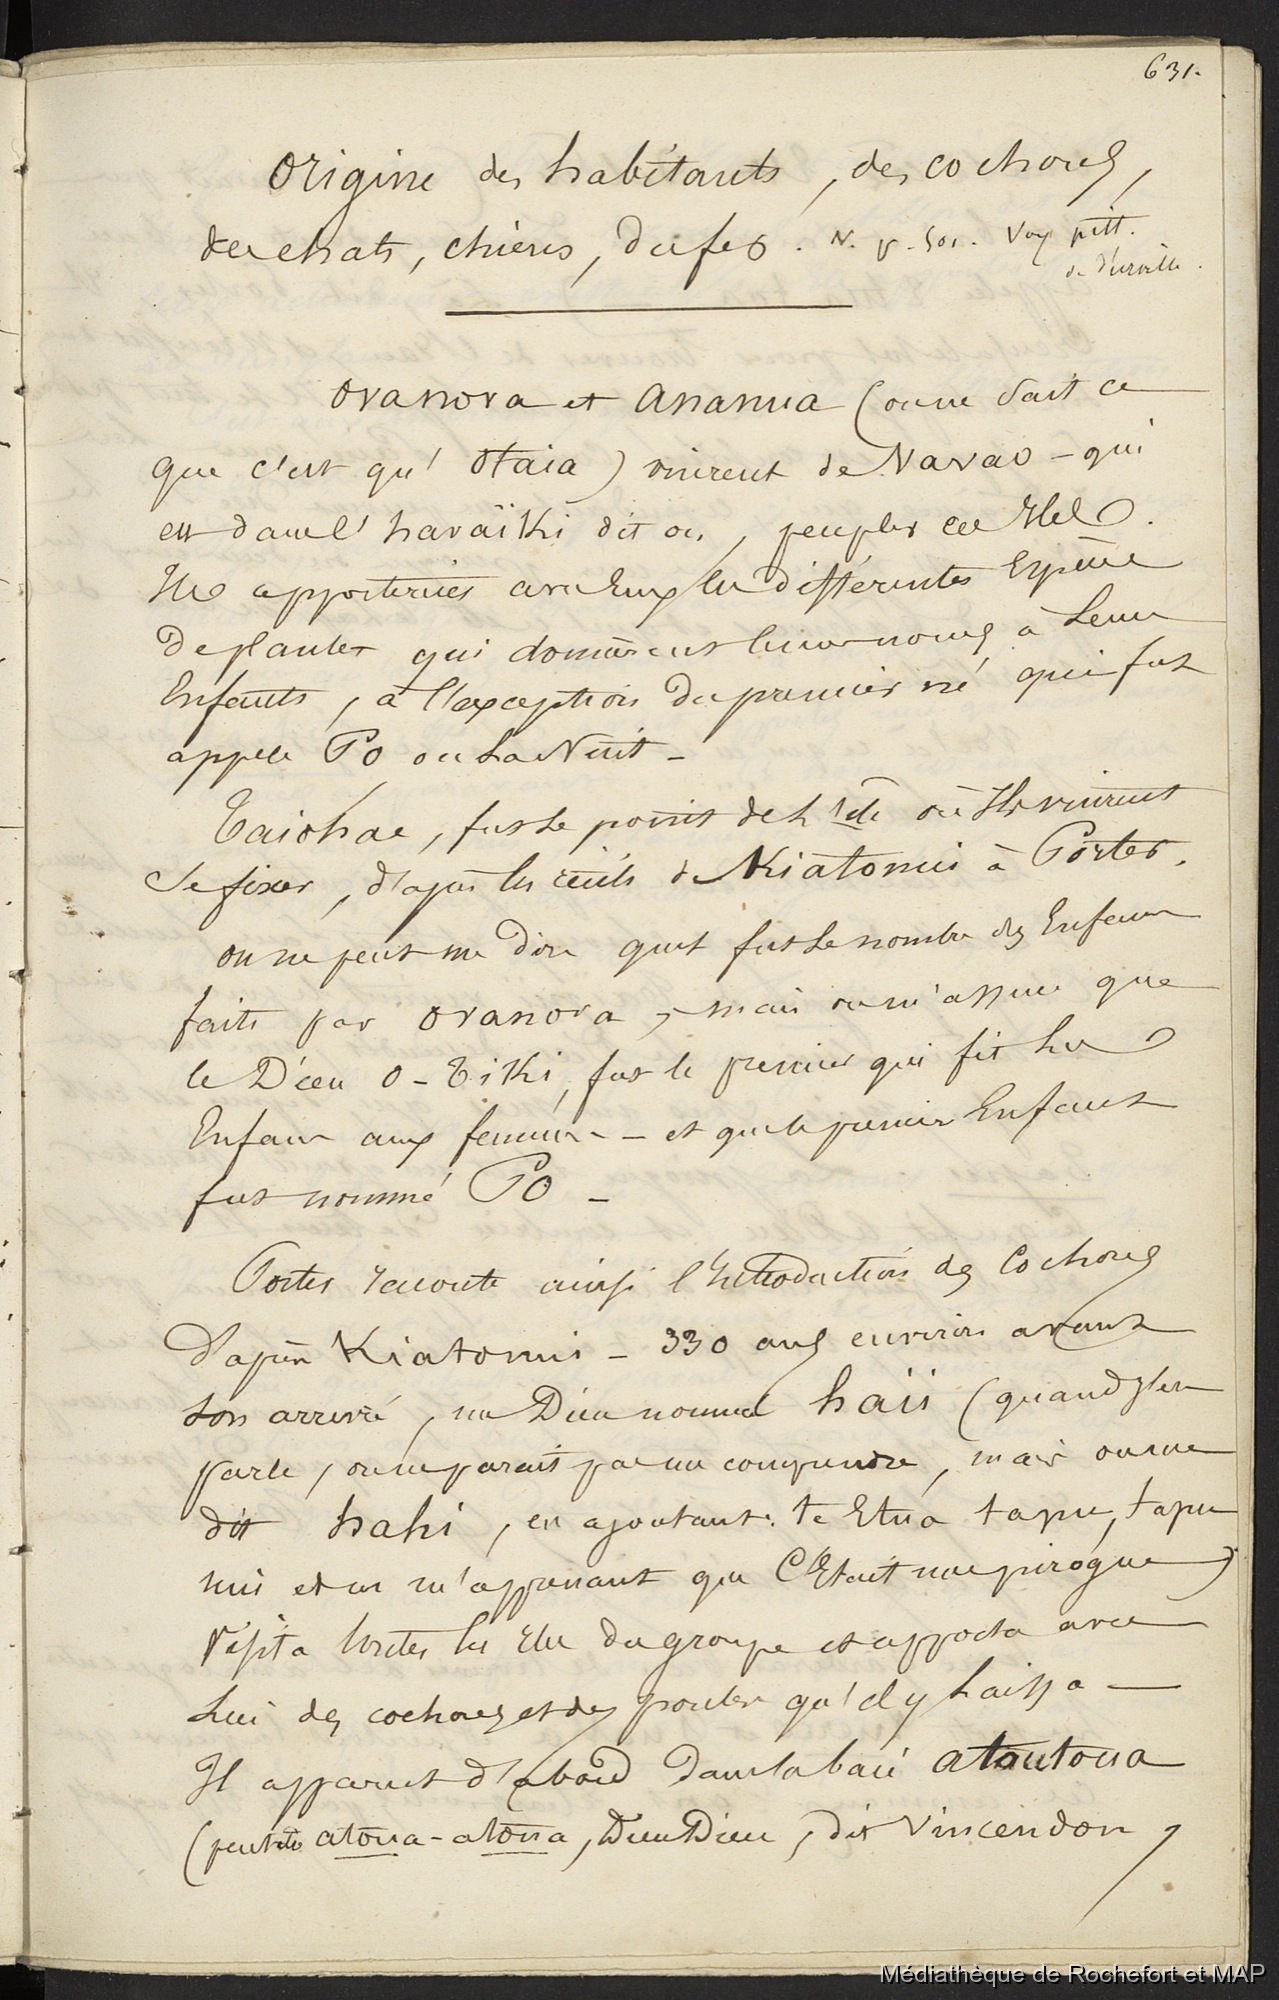 631.
Origine des habitants, des cochons,
des chats, chiens, du fer. N. p. 501. Voy pitt.
de d'urville.
Ovanova et Ananua (on ne sait ce
que c'est qu'Otaia) vinrent de Navao - qui
est dans l'havaïki dit on, peupler ces Iles.
Ils apportèrent avec Eux les différentes Espèces
De plantes qui donnèrent leurs noms à Leurs
Enfants, à l'exception du premier né qui fut
appelé Po ou La Nuit -
Taiohae, fut le point de L'ile où Ils vinrent
Se fixer, d'après les récits de Kiatonui à Porter.
on ne peut me dire quel fut le nombre des Enfans
faits par Ovanova, mais on m'assure que
le Dieu O-Tiki, fut le premier qui fit les
Enfans aux femmes - et que le premier Enfant
fut nommé PO -
Porter raconte ainsi l'Introduction des Cochons
D'après Kiatonui - 330 ans environ avant
son arrivé, un Dieu nommé haii (quand j'en
parle, on ne parait pas me comprendre, mais on me
dit hahi, en ajoutant: te Etua tapu, tapu
nui et en m'apprenant que C'Etait une pirogue)
Visita toutes les Iles du groupe et apporta avec
Lui des cochons et des poules qu'il y Laissa —
Il apparut d'abord Dans la baie Atoutoua
(peut etre atoua-atoua, Dieu Dieu, dit Vincendon,
Médiathèque de Rochefort et MAP